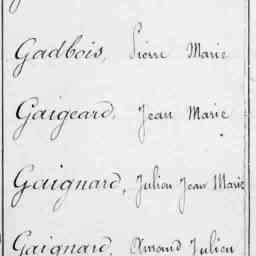 Gadbois, Pierre Marie
Gaigeard, Jean Marie
Gaignard, Julien Jean Marie
Gaignard, Amand Julien